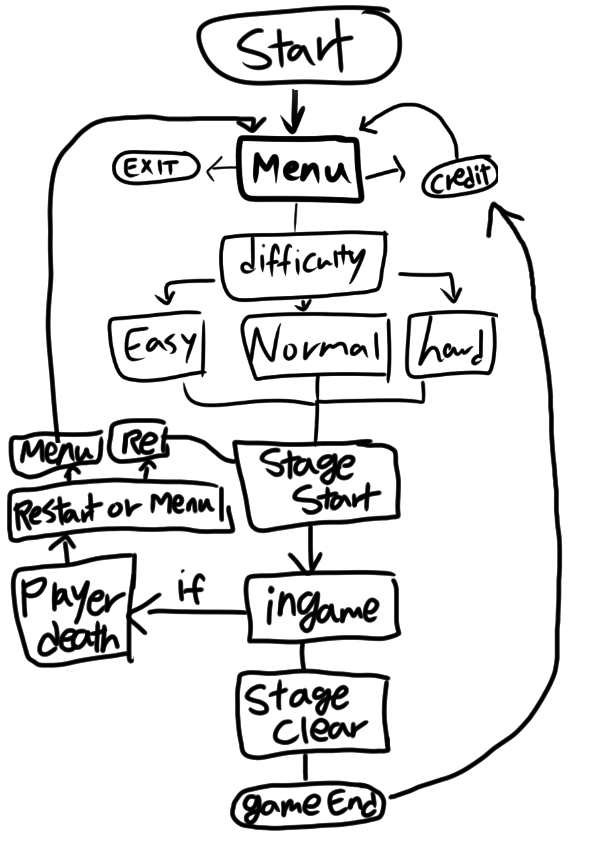 Start
EXIT
Menu
credit
difficulty
Easy
Normal
hard
Menu
Re
Stage
Start
Restart or Menu
if
Player
death
ingame
Stage
Clear
game End